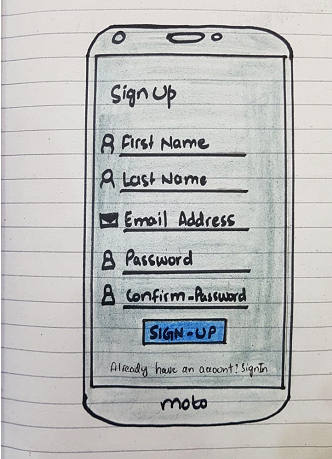 Sign Up
First Name
Last Name
Email Address
Password
Confirm-Password
SIGN-UP
Already have an account? SignIn
moto